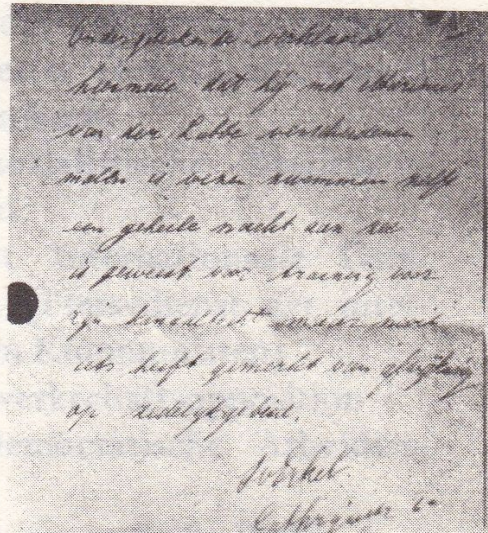 Ondergetekende verklaard
hiermede dat hij met
van der verscheidenen
malen is wezen zwemmen zelfs
een gehele nacht aan zee
is geweest voor training voor
zijn kanaaltocht maar nooit
iets heeft gemerkt van
op zedelijk gebied.